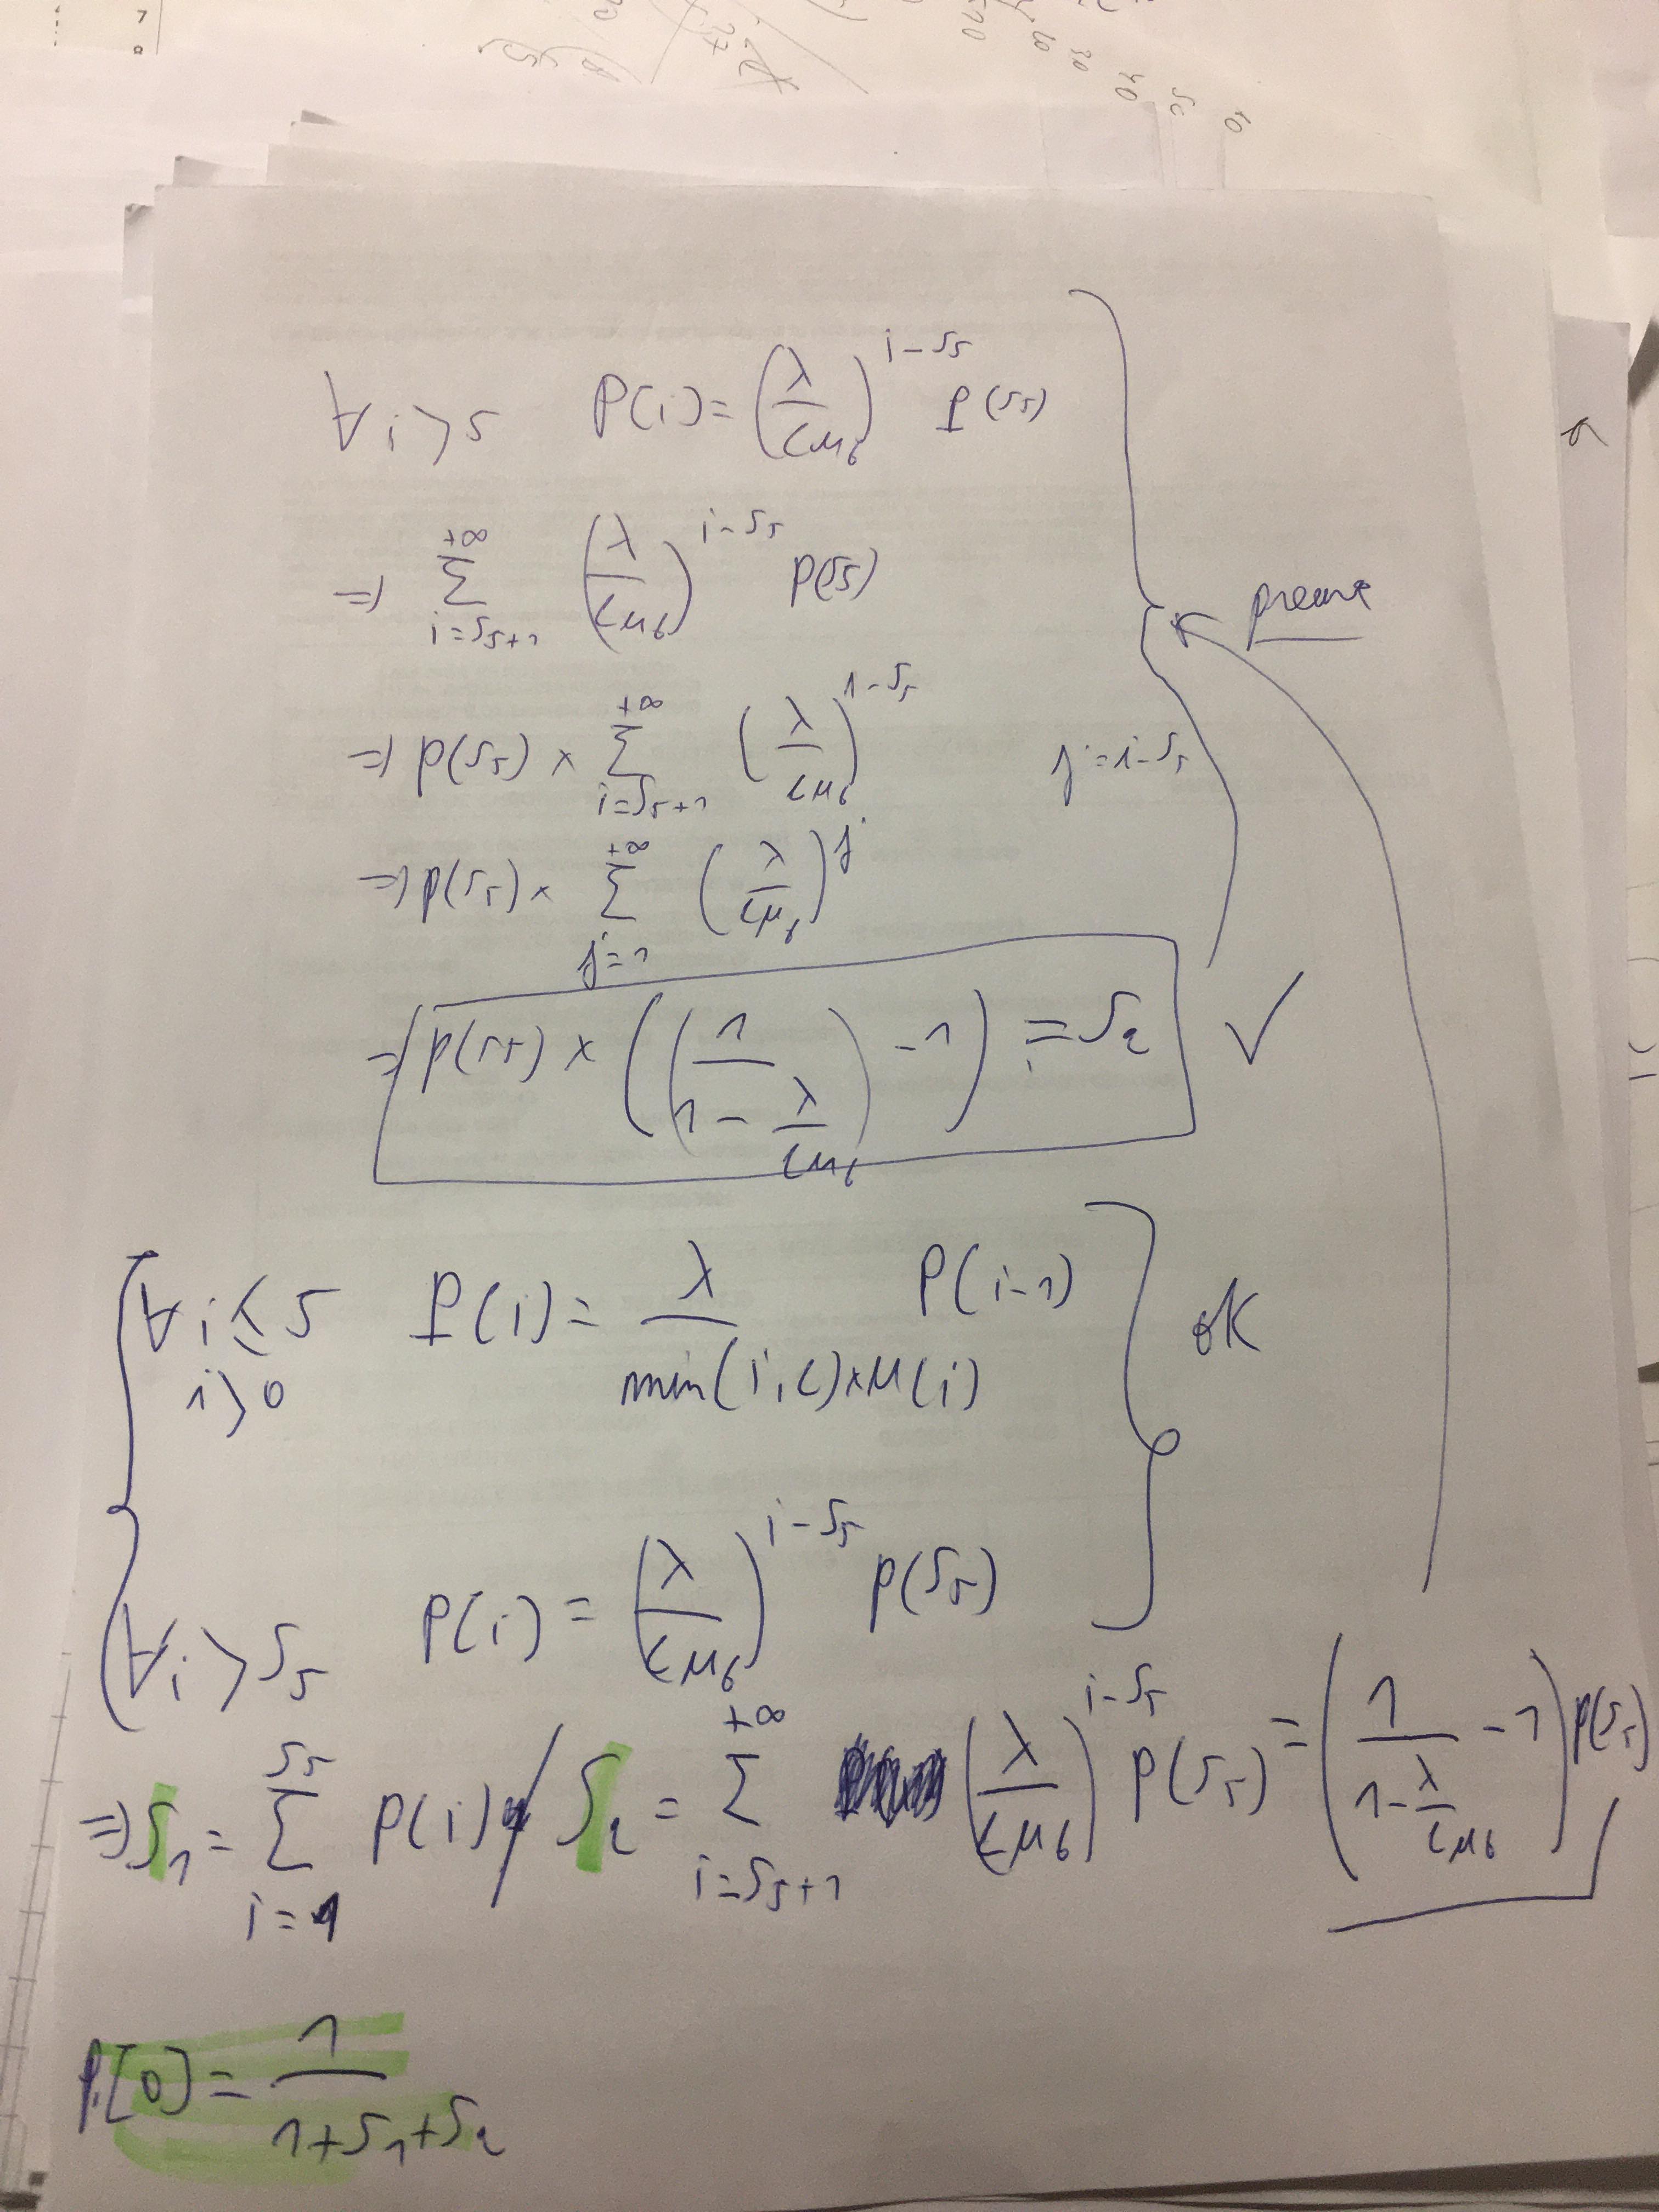 7
8
10 20 30 40 50 60
∀ i > 5 P(i) = (λ/(cμ₆))^(i-S₅) P(S₅)
=) Σ_{i=S₅+1}^{+∞} (λ/(cμ₆))^(i-S₅) P(S₅)
=) p(S₅) × Σ_{i=S₅+1}^{+∞} (λ/(cμ₆))^(i-S₅) j = i-S₅
=) p(S₅) × Σ_{j=1}^{+∞} (λ/(cμ₆))^j
=) p(S₅) × ((1/(1 - λ/(cμ₆))) - 1) = S₂ ✓
∀ i ≤ 5 P(i) = λ/(min(i,c)×μ(i)) P(i-1) ok
i > 0
∀ i > S₅ P(i) = (λ/(cμ₆))^(i-S₅) p(S₅)
=) S₁ = Σ_{i=1}^{S₅} P(i) / S₂ = Σ_{i=S₅+1}^{+∞} (λ/(cμ₆))^(i-S₅) P(S₅) = (1/(1 - λ/(cμ₆)) - 1) p(S₅)
P[0] = 1/(1+S₁+S₂)